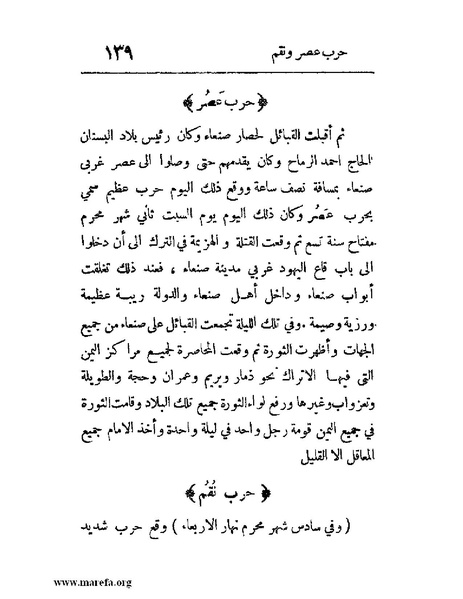 حرب عصر ونقم
١٣٩
﴿ حرب عَصُر ﴾
ثم أقبلت القبائل لحصار صنعاء وكان رئيس بلاد البستان
الحاج احمد الرماح وكان يقدمهم حتى وصلوا الى عصر غربى
صنعاء بمسافة نصف ساعة ووقع ذلك اليوم حرب عظيم سمي
بحرب عَصُر وكان ذلك اليوم يوم السبت ثاني شهر محرم
مفتاح سنة تسع ثم وقعت القتلة و الهزيمة في الترك الى أن دخلوا
الى باب قاع اليهود غربي مدينة صنعاء ، فعند ذلك تغلقت
أبواب صنعاء وداخل أهل صنعاء والدولة ريبة عظيمة
ورزية وصيمة .وفي تلك الليلة تجمعت القبائل على صنعاء من جميع
الجهات وأظهرت الثورة ثم وقعت المحاصرة لجميع مراكز اليمن
التى فيها الاتراك نحو ذمار ويريم وعمران وحجة والطويلة
وتعزواب وغيرها ورفع لواء الثورة جميع تلك البلاد وقامت الثورة
في جميع اليمن قومة رجل واحد في ليلة واحدة وأخذ الامام جميع
المعاقل الا القليل
﴿ حرب نُقُم ﴾
( وفي سادس شهر محرم نهار الاربعاء ) وقع حرب شديد
www.marefa.org